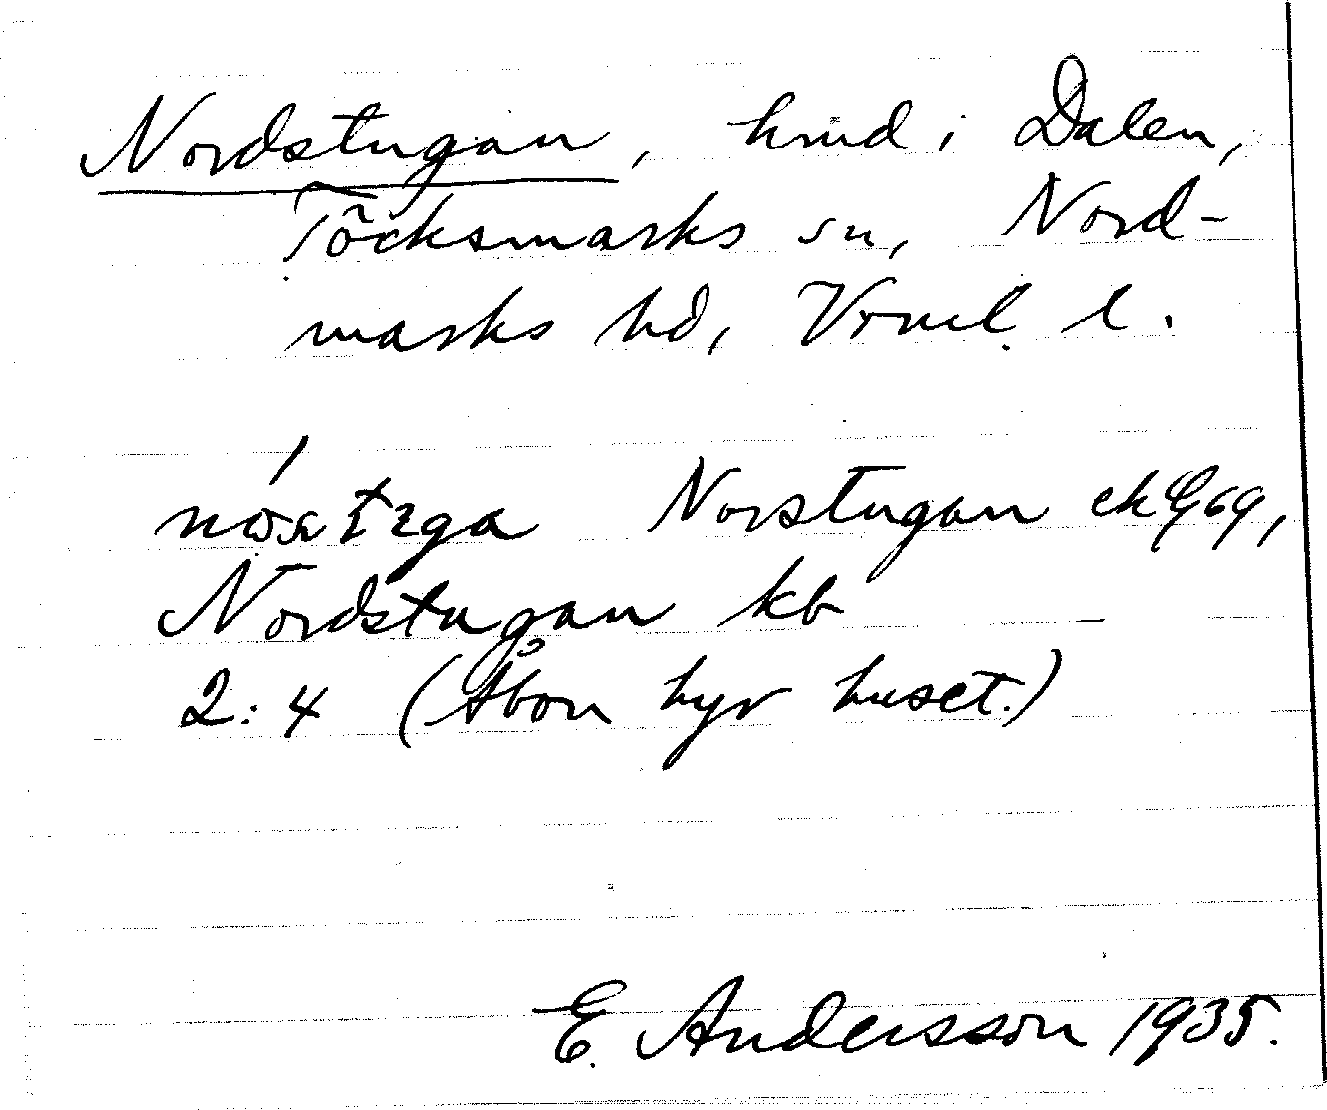 Nordstugan, hmd i Dalen,
Töcksmarks sn, Nord-
marks hd, Vrml. l.
Norstugan ek
Nordstugan kb
2:4 (Åbon hyr huset.)
E. Andersson 1935.